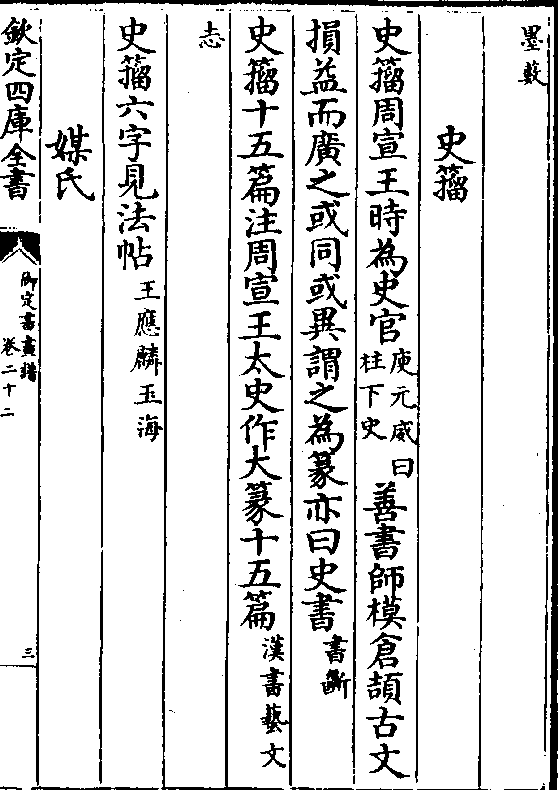 墨藪
史籀
史籀周宣王時為史官庾元威曰柱下史善書師模倉頡古文
損益而廣之或同或異謂之為篆亦曰史書書斷
史籀十五篇注周宣王太史作大篆十五篇漢書藝文
志
史籀六字見法帖王應麟玉海
媒氏
欽定四庫全書
御定書畫譜
卷二十二
三